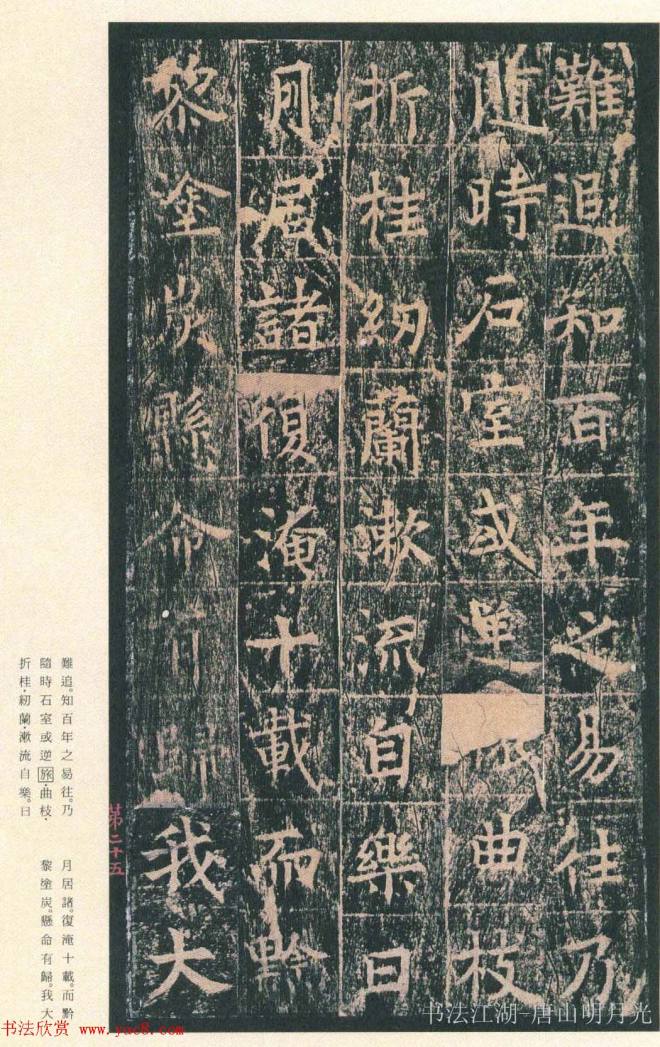 難追知百年之易往乃
随時石室或曲枝
折桂紉蘭漱流自樂日
月居諸復淹十載而黔
黎塗炭懸命有歸我大
第二十五
難追。知百年之易往。乃
隨時石室或逆旅・曲枝・
折桂・紉蘭・漱流自樂。日
月居諸。復淹十載。而黔
黎塗炭。懸命有歸。我大
书法欣赏 www.yac8.com
书法江湖-唐山明月光